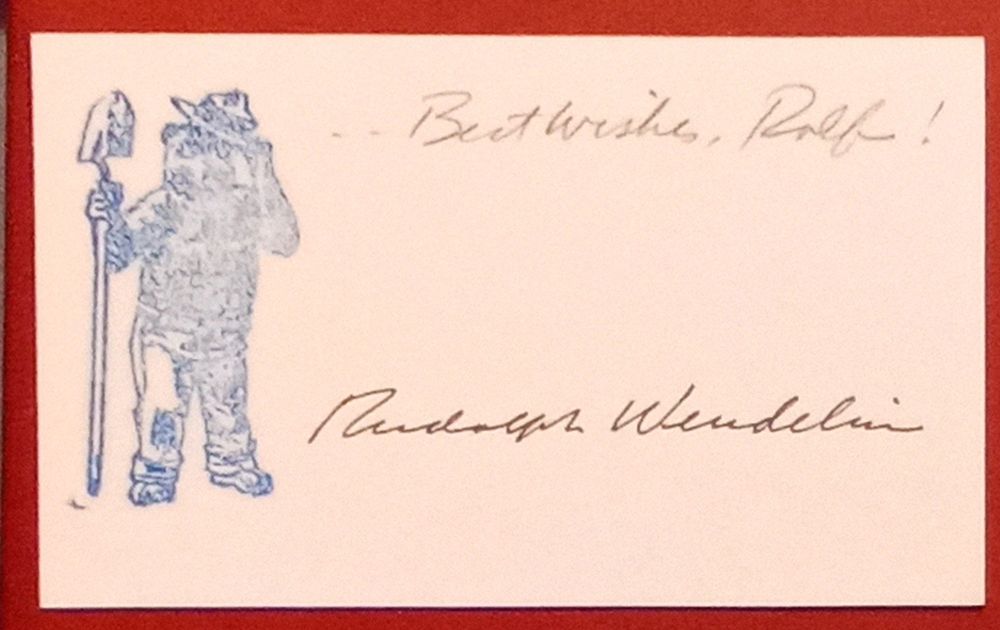 -- Best wishes, Rolf!
Rudolph Wendelin